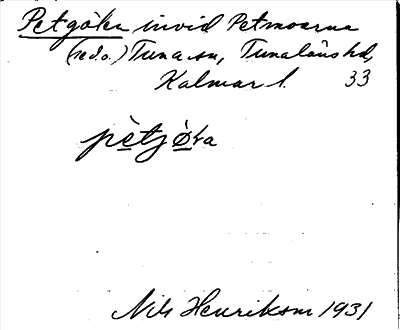 Petgöka invid Petmoarna
(se d.o.) Tuna sn, Tunaläns hd,
Kalmar l. 33
pètjö̀ka
Nils Henrikson 1931